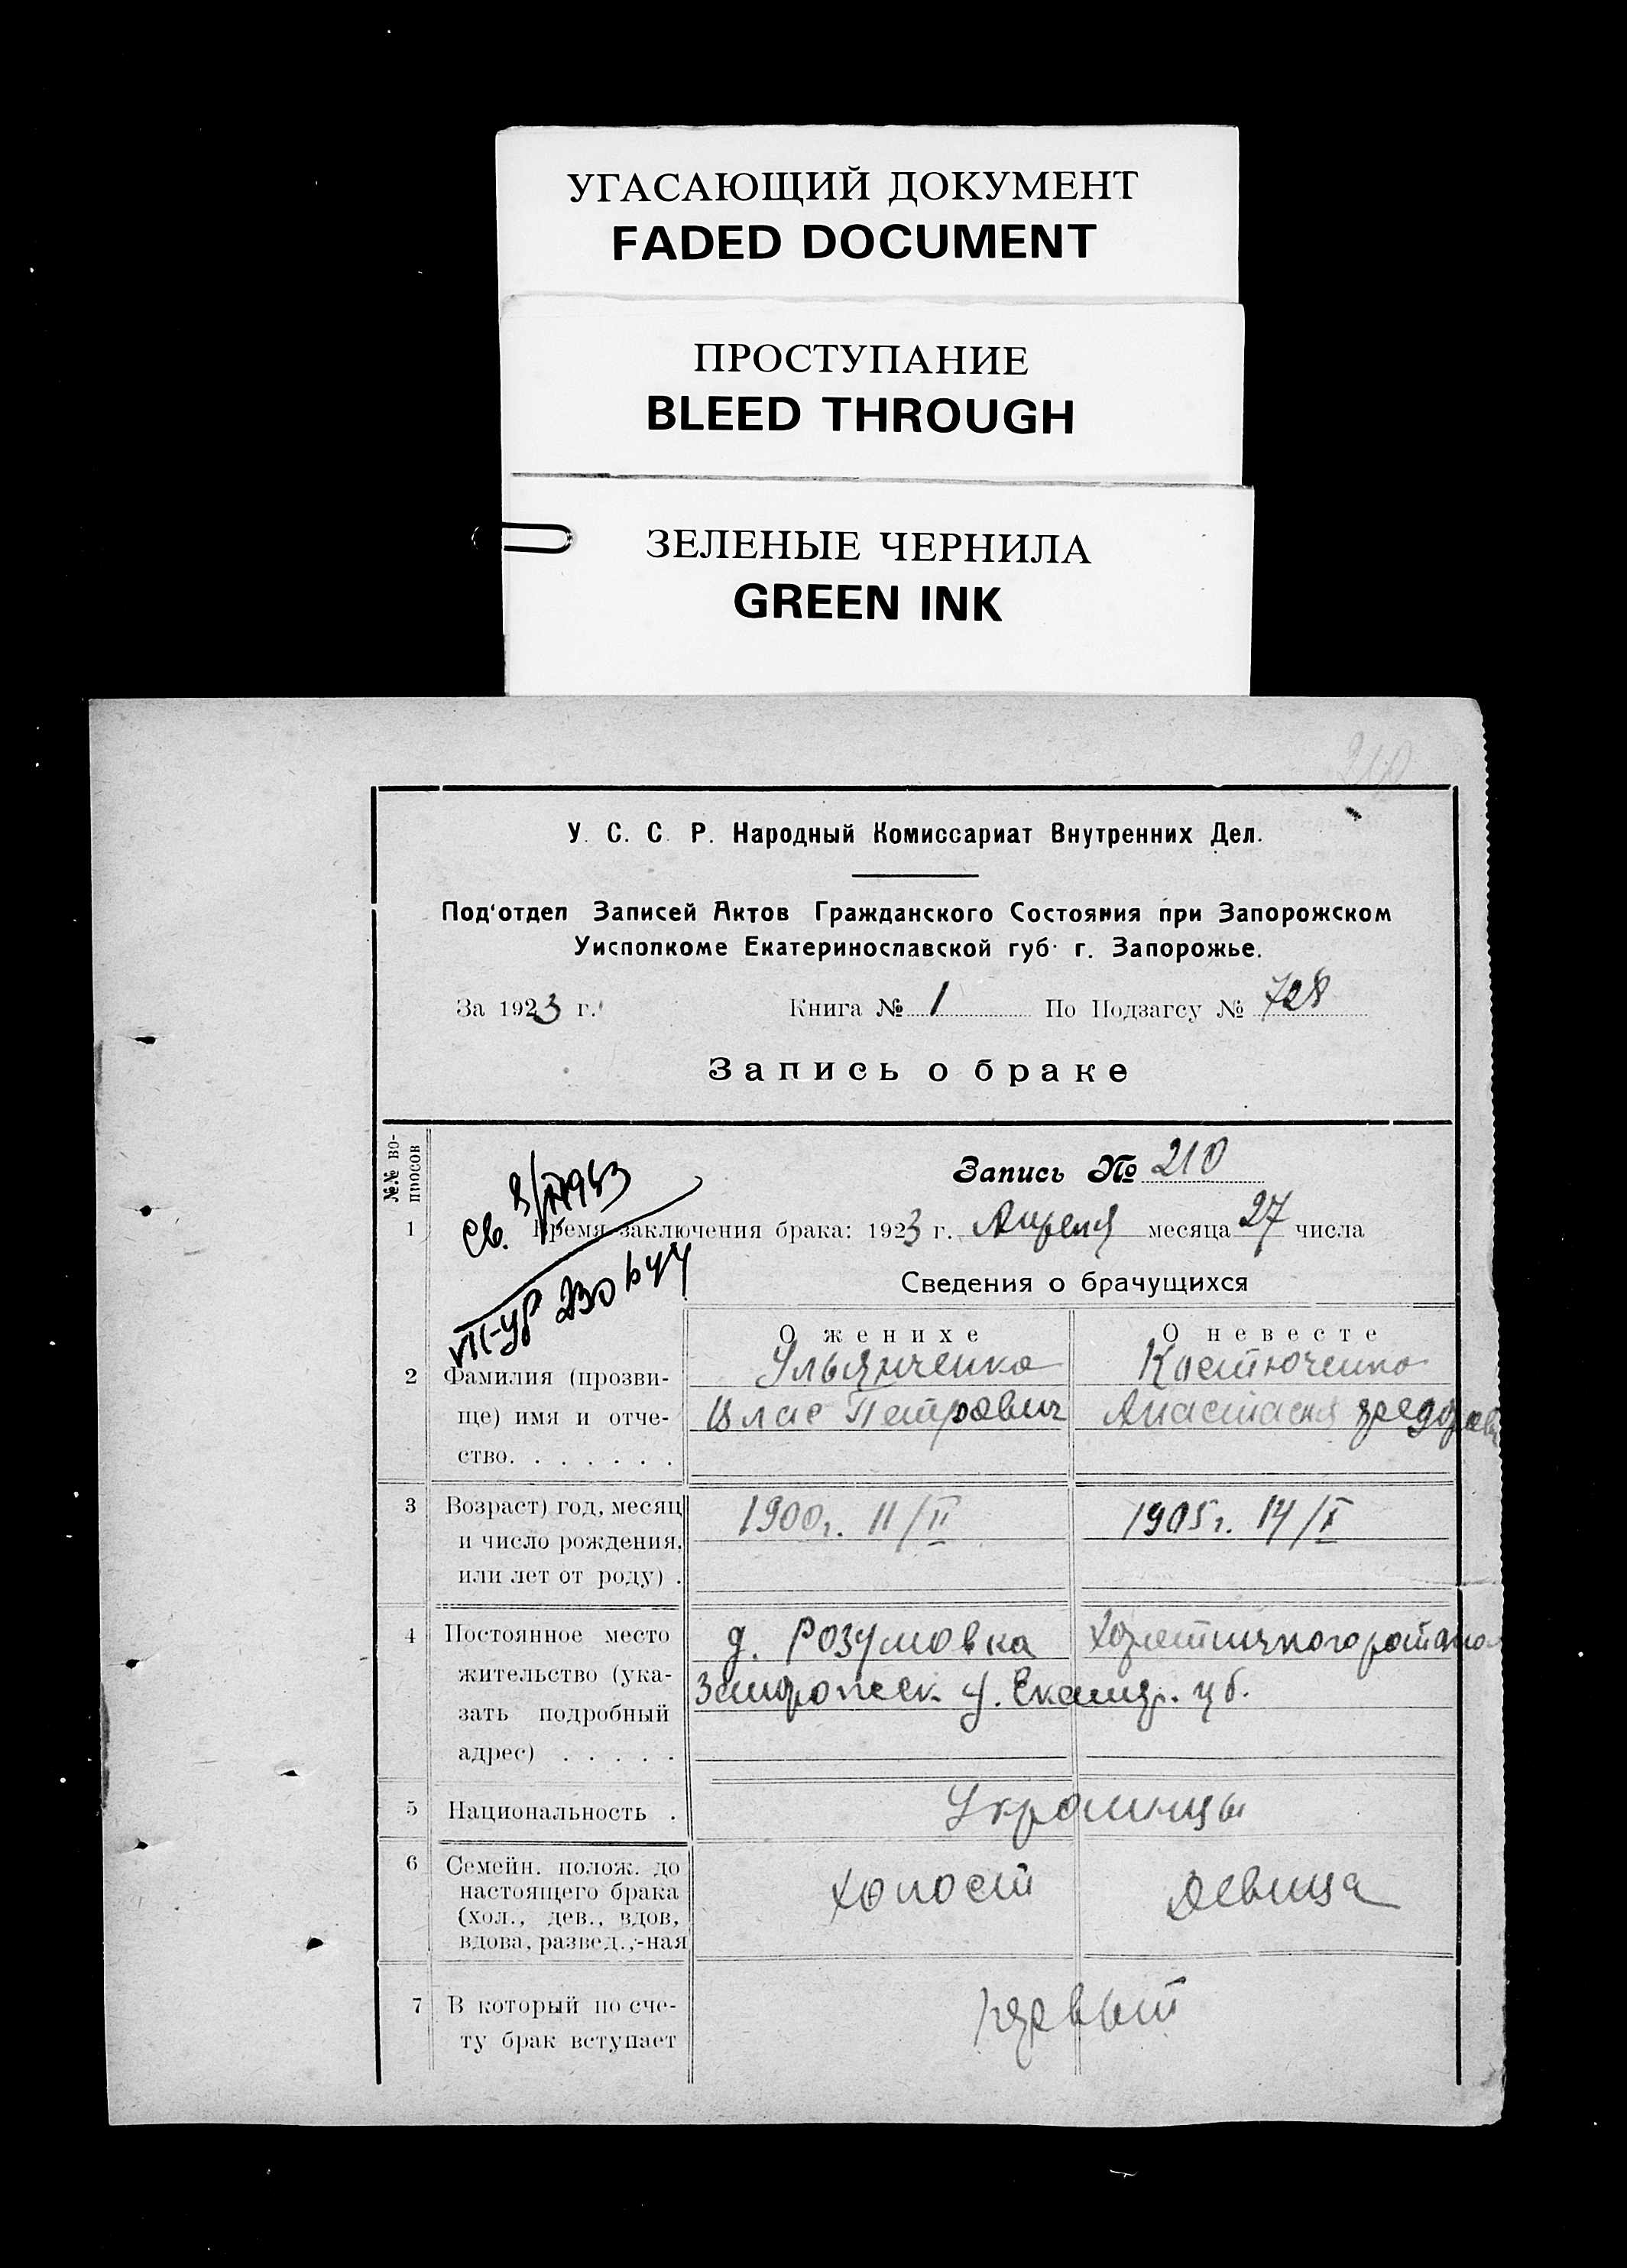 УГАСАЮЩИЙ ДОКУМЕНТ
FADED DOCUMENT
ПРОСТУПАНИЕ
BLEED THROUGH
ЗЕЛЕНЫЕ ЧЕРНИЛА
GREEN INK
210
У. С. С. Р. Народный Комиссариат Внутренних Дел.
Под'отдел Записей Актов Гражданского Состояния при Запорожском
Уисполкоме Екатеринославской губ. г. Запорожье.
За 1923 г. Книга № 1 По Подзагсу № 728
Запись о браке
№№ во-
просов
Запись № 210
Св.
1 Время заключения брака: 1923 г. Апреля месяца 27 числа
Сведения о брачущихся
О женихе О невесте
2 Фамилия (прозви- Ульянченко Костюченко
ще) имя и отче- Влас Петрович Анастасия
ство. . . . . . .
3 Возраст) год, месяц 1900г. 11/II 1905г. 14/X
и число рождения,
или лет от роду) .
4 Постоянное место д. Розумовка
жительство (ука- Запорожск. у. Екатер. губ.
зать подробный
адрес) . . . . .
5 Национальность . Украинцы
6 Семейн. полож. до холост девица
настоящего брака
(хол., дев., вдов,
вдова, развед.,-ная
7 В который по сче- первый
ту брак вступает